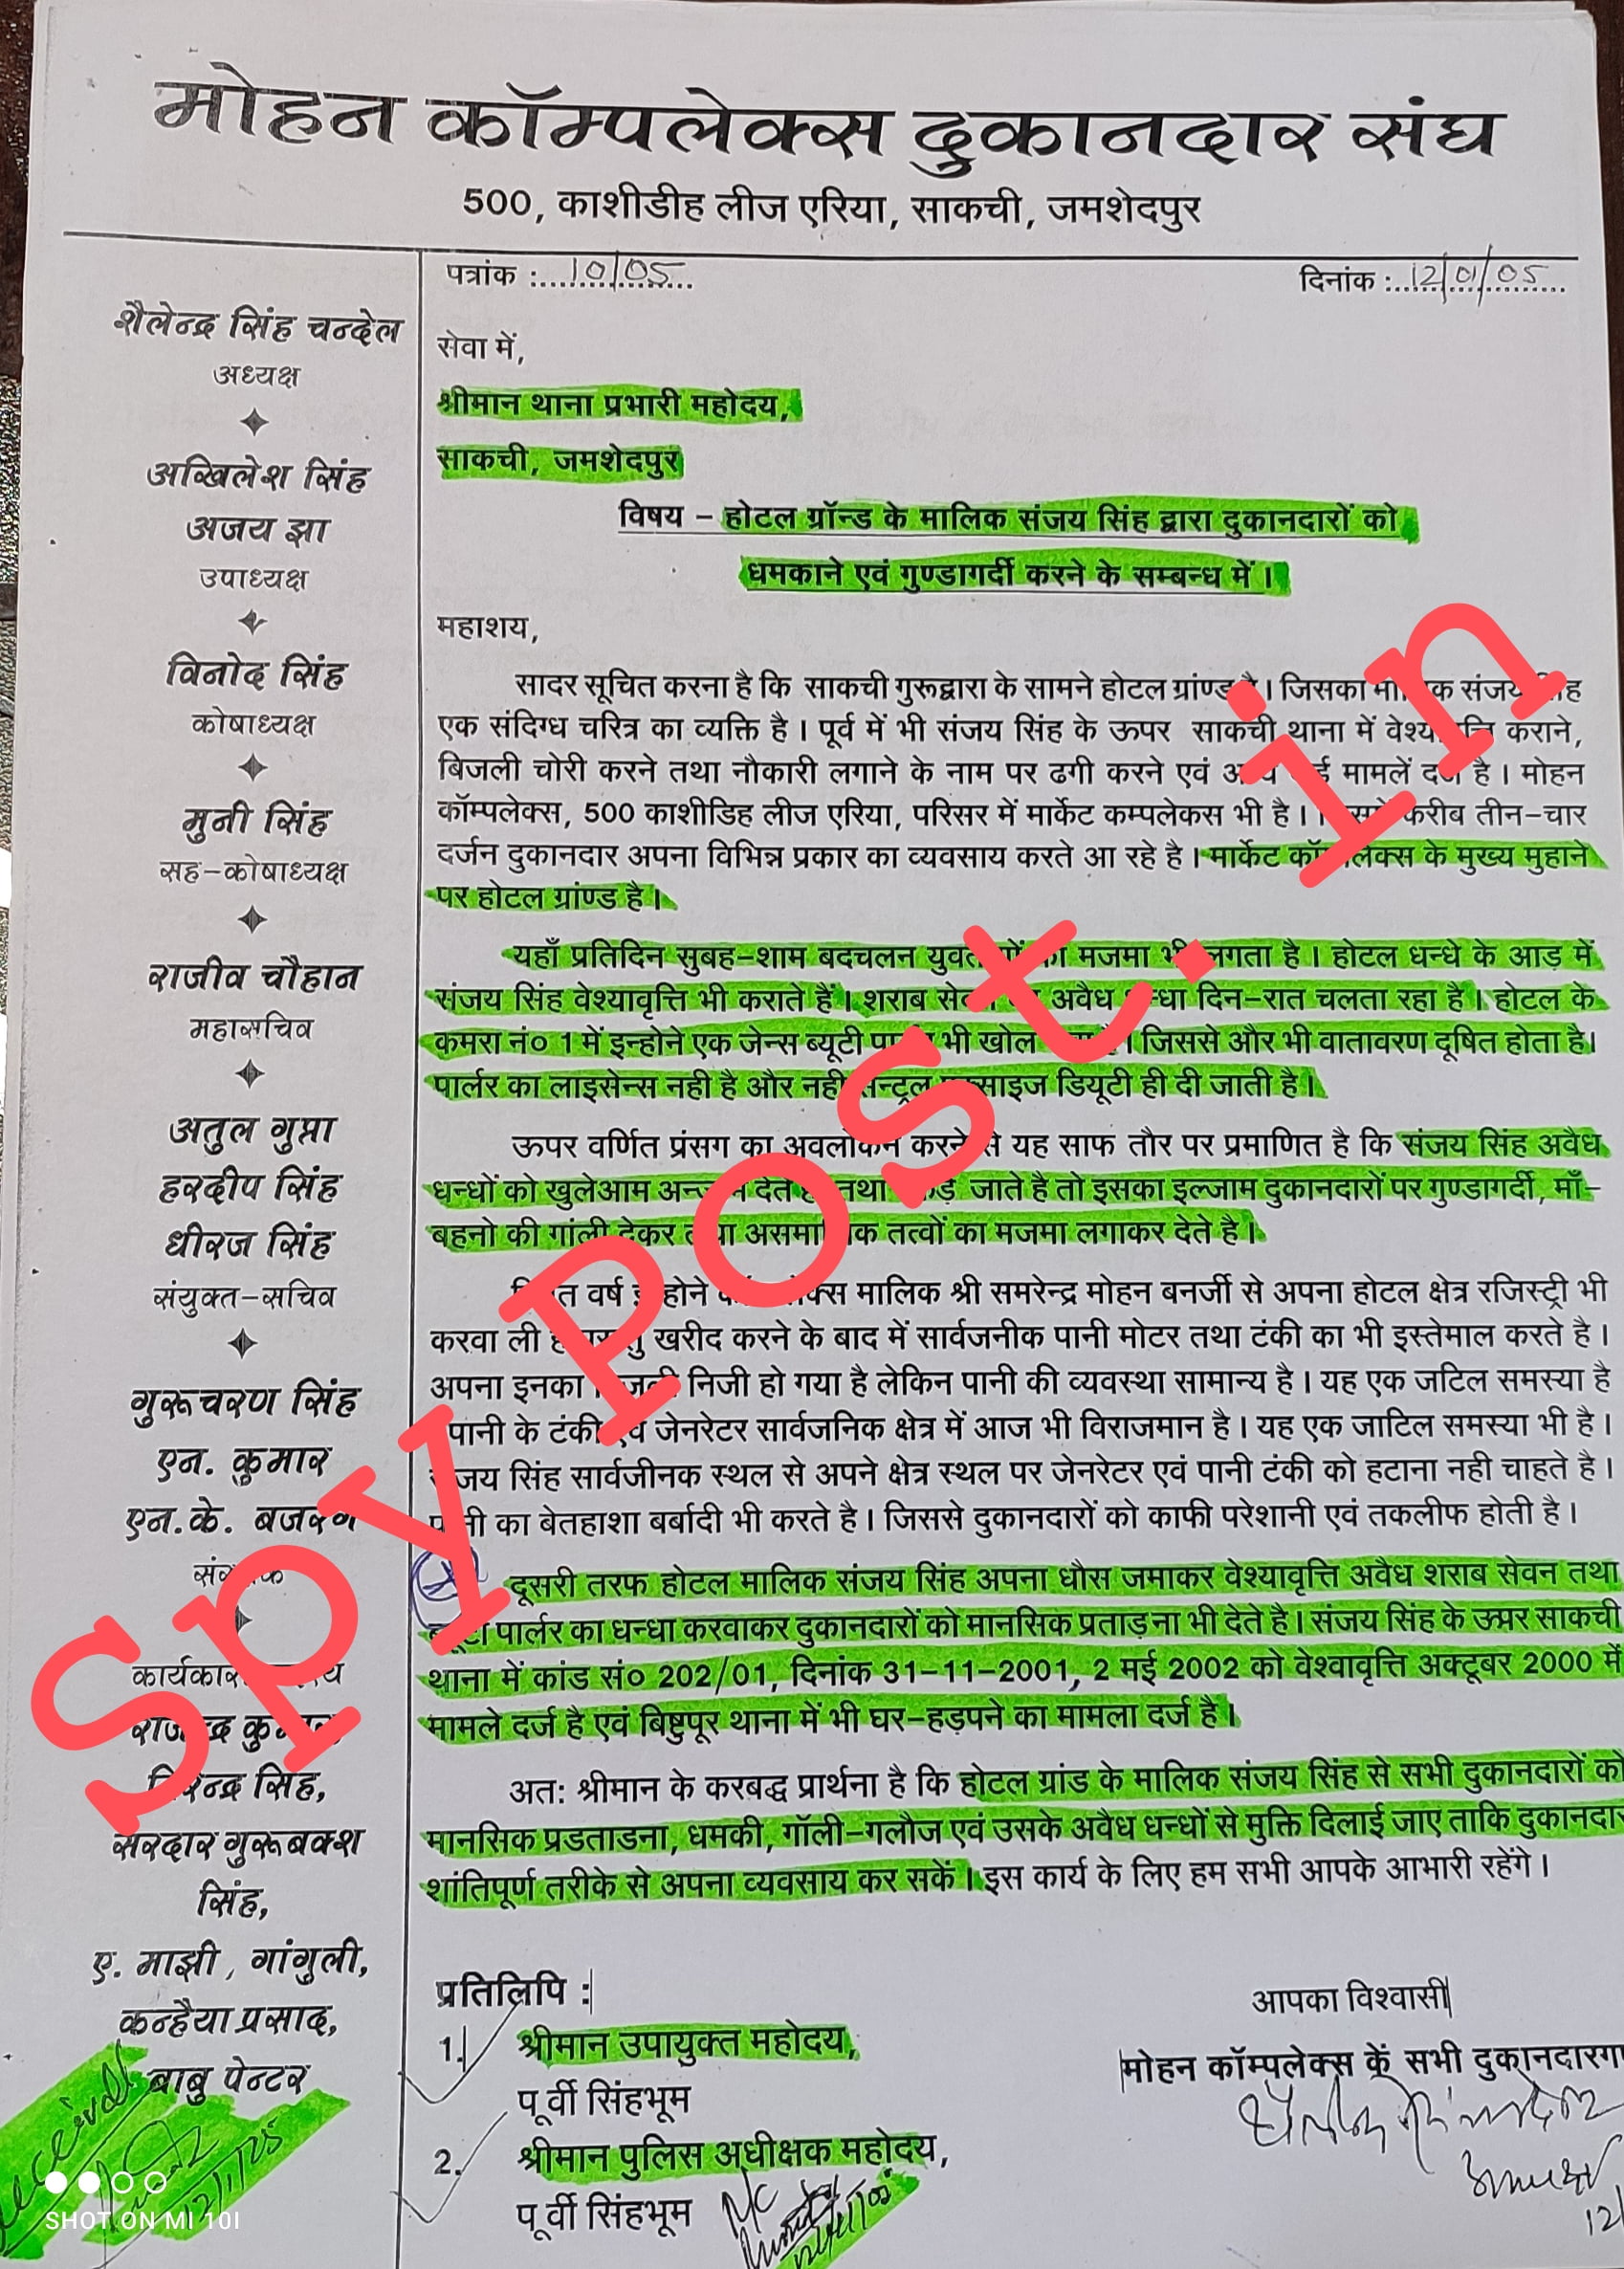 मोहन कॉम्पलेक्स दुकानदार संघ
500, काशीडीह लीज एरिया, साकची, जमशेदपुर
पत्रांक :...10/05...
दिनांक :...12/01/05...
शैलेन्द्र सिंह चन्देल
अध्यक्ष
अखिलेश सिंह
अजय झा
उपाध्यक्ष
विनोद सिंह
कोषाध्यक्ष
मुनी सिंह
सह-कोषाध्यक्ष
राजीव चौहान
महासचिव
अतुल गुप्ता
हरदीप सिंह
धीरज सिंह
संयुक्त-सचिव
गुरूचरण सिंह
एन. कुमार
एन.के. बजरंग
सिंह,
सरदार गुरूबक्श
सिंह,
ए. माझी, गांगुली,
कन्हैया प्रसाद,
बाबु पेन्टर
सेवा में,
श्रीमान थाना प्रभारी महोदय,
साकची, जमशेदपुर
विषय – होटल ग्रॉन्ड के मालिक संजय सिंह द्वारा दुकानदारों को
धमकाने एवं गुण्डागर्दी करने के सम्बन्ध में।
महाशय,
सादर सूचित करना है कि साकची गुरूद्वारा के सामने होटल ग्रांण्ड है। जिसका संजय
एक संदिग्ध चरित्र का व्यक्ति है। पूर्व में भी संजय सिंह के ऊपर साकची थाना में कराने,
बिजली चोरी करने तथा नौकारी लगाने के नाम पर ढगी करने एवं मामलें है। मोहन
कॉम्पलेक्स, 500 काशीडिह लीज एरिया, परिसर में मार्केट कम्पलेकस भी है। करीब तीन-चार
दर्जन दुकानदार अपना विभिन्न प्रकार का व्यवसाय करते आ रहे है। मार्केट के मुख्य मुहाने
पर होटल ग्रांण्ड है।
यहाँ प्रतिदिन सुबह-शाम बदचलन मजमा भी लगता है। होटल धन्धे के आड़ में
संजय सिंह वेश्यावृत्ति भी कराते हैं। शराब अवैध दिन-रात चलता रहा है। होटल के
कमरा नं० 1 में इन्होने एक जेन्स ब्यूटी भी खोल जिससे और भी वातावरण दूषित होता है।
पार्लर का लाइसेन्स नही है और नही डियूटी ही दी जाती है।
ऊपर वर्णित प्रंसग का अवलोकन करने से यह साफ तौर पर प्रमाणित है कि संजय सिंह अवैध
धन्धों को खुलेआम देते तथा जाते है तो इसका इल्जाम दुकानदारों पर गुण्डागर्दी, माँ-
बहनो की गांली देकर मजमा लगाकर देते है।
वर्ष मालिक श्री समरेन्द्र मोहन बनर्जी से अपना होटल क्षेत्र रजिस्ट्री भी
करवा ली खरीद करने के बाद में सार्वजनीक पानी मोटर तथा टंकी का भी इस्तेमाल करते है।
अपना इनका निजी हो गया है लेकिन पानी की व्यवस्था सामान्य है। यह एक जटिल समस्या है
पानी के टंकी एवं जेनरेटर सार्वजनिक क्षेत्र में आज भी विराजमान है। यह एक जाटिल समस्या भी है।
सिंह सार्वजीनक स्थल से अपने क्षेत्र स्थल पर जेनरेटर एवं पानी टंकी को हटाना नही चाहते है।
का बेतहाशा बर्बादी भी करते है। जिससे दुकानदारों को काफी परेशानी एवं तकलीफ होती है।
दूसरी तरफ होटल मालिक संजय सिंह अपना धौस जमाकर वेश्यावृत्ति अवैध शराब सेवन तथा
पार्लर का धन्धा करवाकर दुकानदारों को मानसिक प्रताड़ना भी देते है। संजय सिंह के ऊपर साकची
थाना में कांड सं० 202/01, दिनांक 31-11-2001, 2 मई 2002 को वेश्वावृत्ति अक्टूबर 2000 में
मामले दर्ज है एवं बिष्टुपूर थाना में भी घर-हड़पने का मामला दर्ज है।
अतः श्रीमान के करबद्ध प्रार्थना है कि होटल ग्रांड के मालिक संजय सिंह से सभी दुकानदारों को
मानसिक प्रडताडना, धमकी, गॉली-गलौज एवं उसके अवैध धन्धों से मुक्ति दिलाई जाए ताकि दुकानदार
शांतिपूर्ण तरीके से अपना व्यवसाय कर सकें। इस कार्य के लिए हम सभी आपके आभारी रहेंगे।
प्रतिलिपि :
1. श्रीमान उपायुक्त महोदय,
पूर्वी सिंहभूम
2. श्रीमान पुलिस अधीक्षक महोदय,
पूर्वी सिंहभूम
आपका विश्वासी
मोहन कॉम्पलेक्स कें सभी दुकानदारगण
Received
Spy Post.in
SHOT ON MI 10I